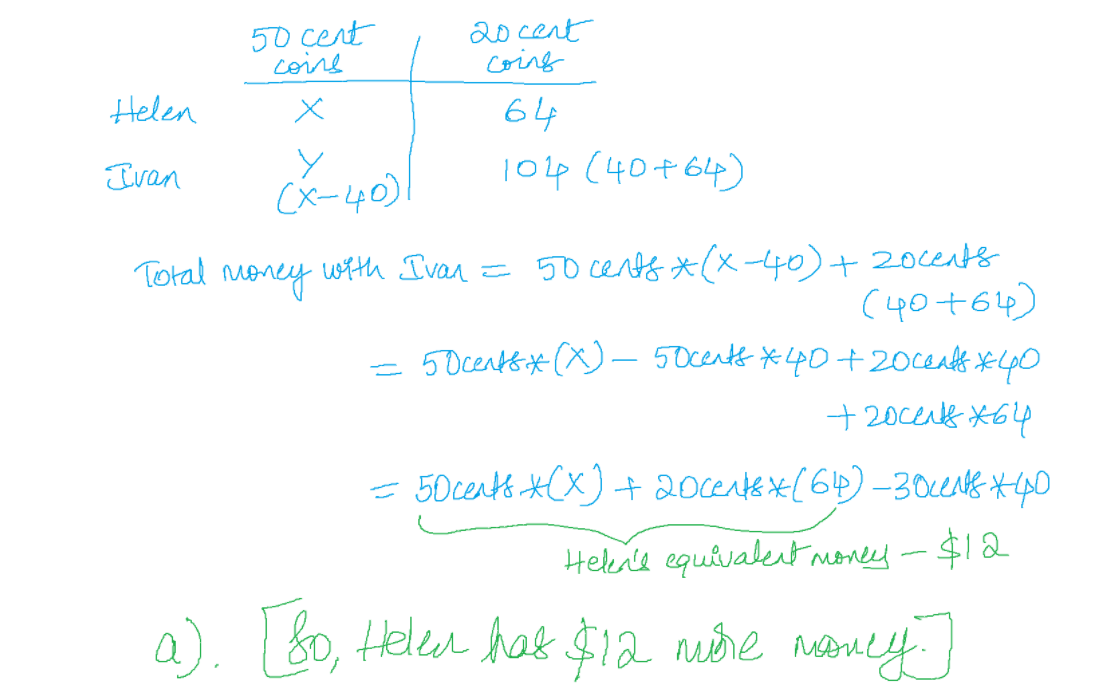 50 cent 20 cent
coins coins
Helen X 64
Ivan Y 104 (40+64)
(X-40)
Total money with Ivan = 50 cents *(X-40) + 20cents
(40+64)
= 50cents*(X) - 50cents *40 + 20cents *40
+ 20cents *64
= 50cents *(X) + 20cents*(64) - 30cents *40
Helen's equivalent money - $12
a). [So, Helen has $12 more money.]